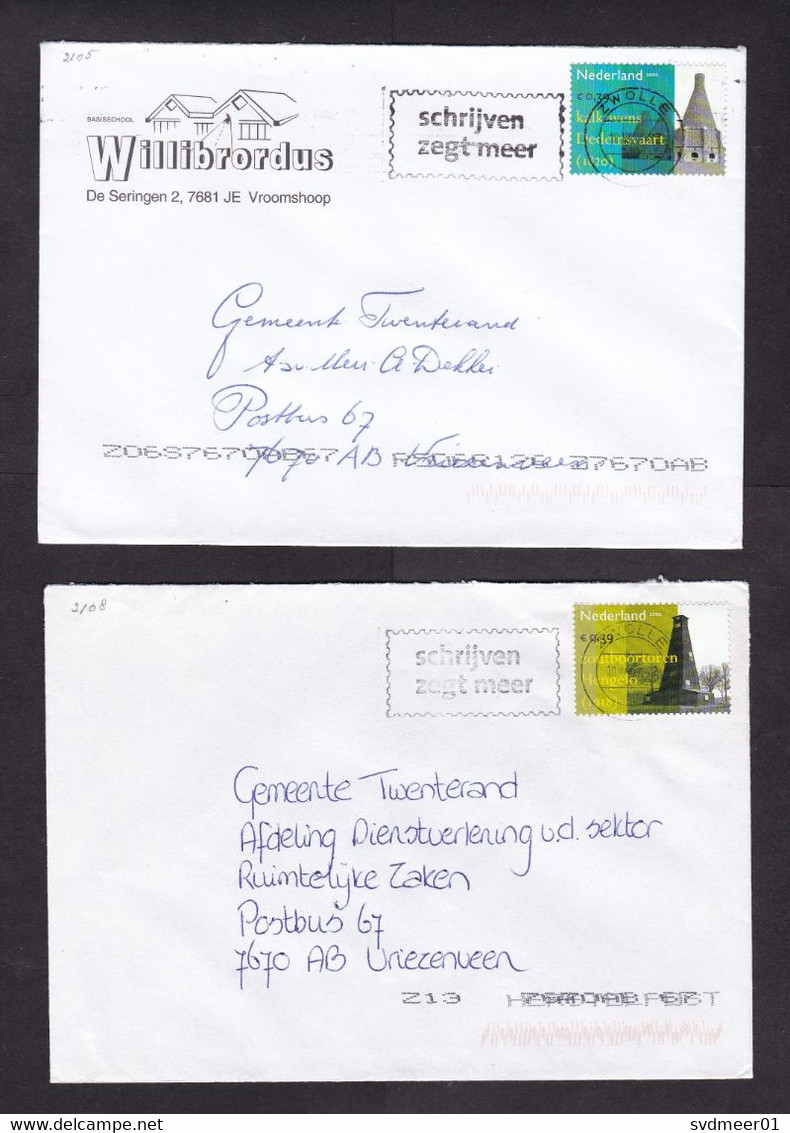 2105
BASISSCHOOL
Willibrordus
De Seringen 2, 7681 JE Vroomshoop
schrijven
zegt meer
Nederland 2002
€ 0,39
ZWOLLE
kalkovens
Dedemsvaart
(1820)
Gemeente Twenterand
A. Dekker
Postbus 67
7670 AB Vriezenveen
Z06S7670AB67
37670AB
2108
schrijven
zegt meer
Nederland 2002
€ 0,39
ZWOLLE
zoutboortoren
Hengelo
(1918)
Gemeente Twenterand
Afdeling Dienstverlening v.d. sektor
Ruimtelijke Zaken
Postbus 67
7670 AB Vriezenveen
Z13
delcampe.net
svdmeer01